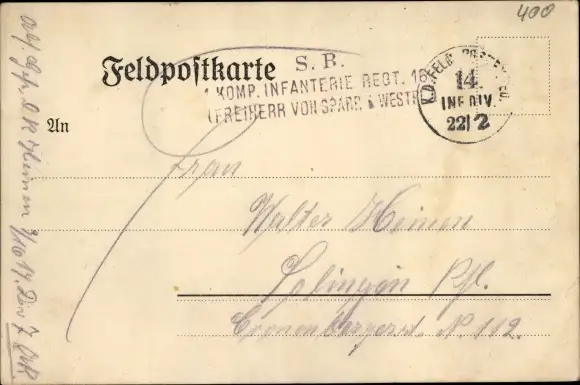 400
Feldpostkarte
S. B.
KOMP. INFANTERIE REGT. 16
(FREIHERR VON SPARR WESTF
K.D. FELD-POSTEXPED.
14
INF DIV.
22/2
An
Frau
Walter Heinen
Solingen
Cronenbergerst. N. 112.
Abf. Heinen 9/16 14. Div 7